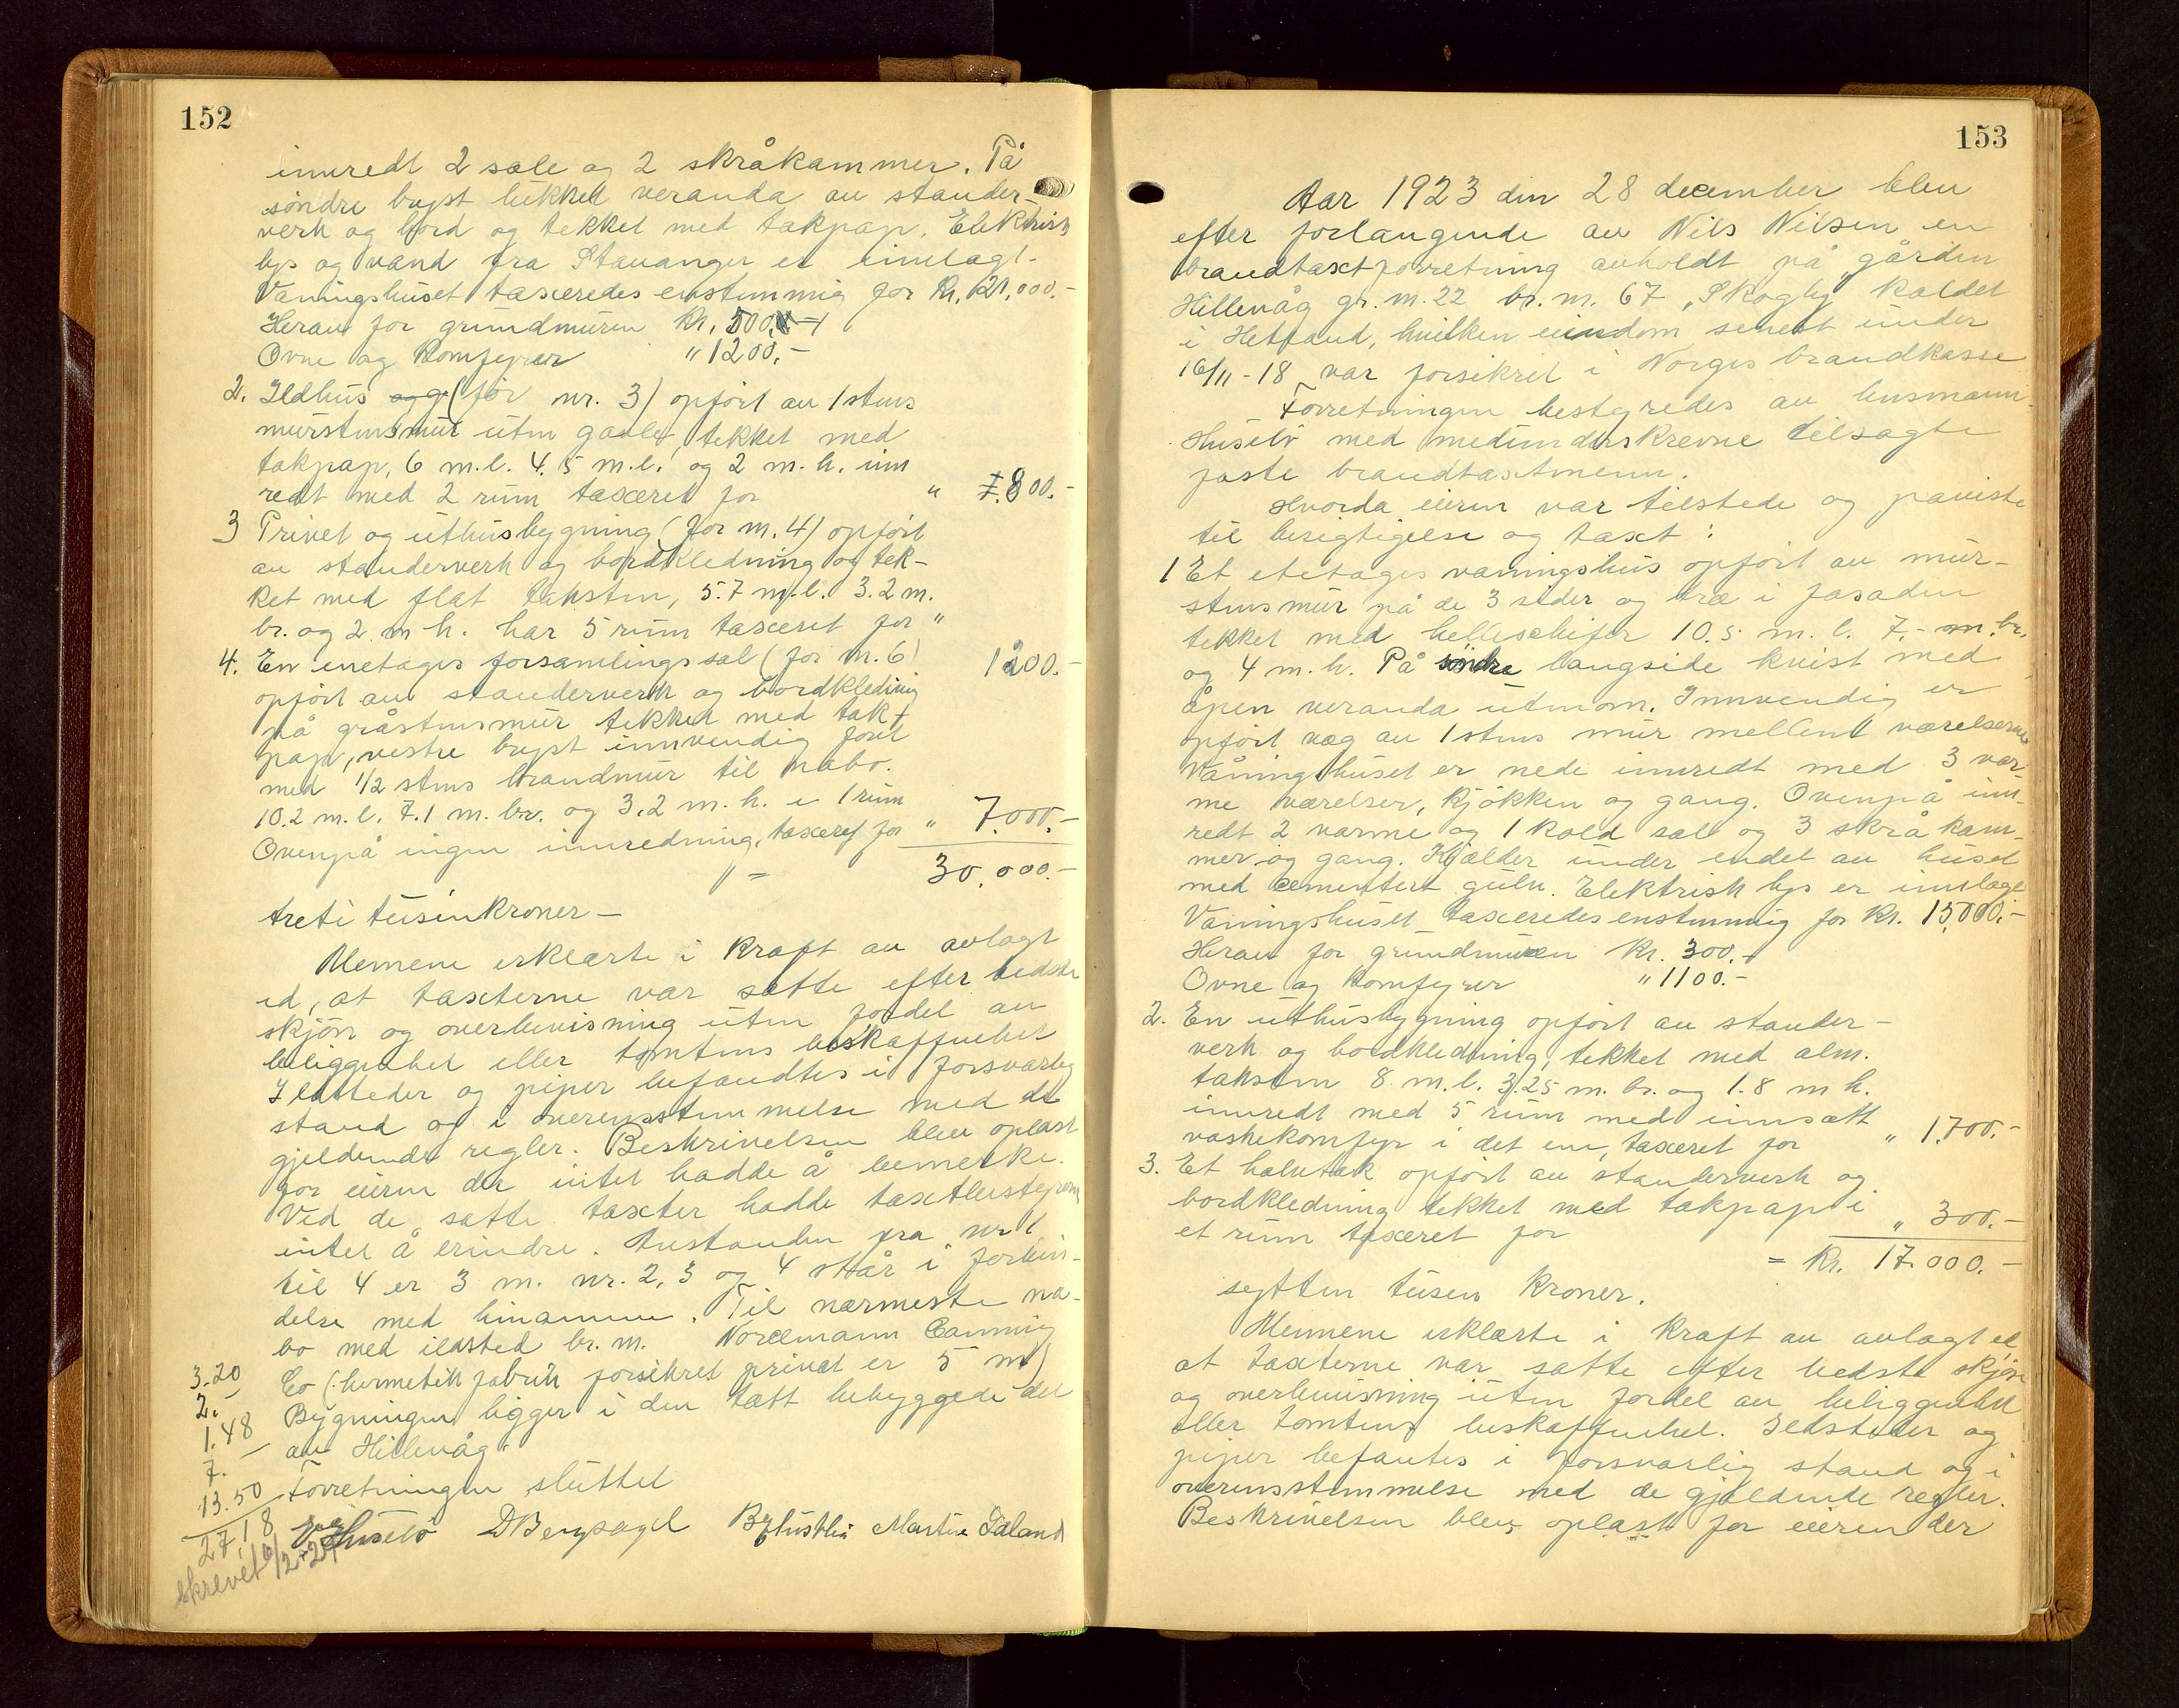 152
innredt 2 sale og 2 skråkammer. På
söndre bryst lukket veranda av stander-
verk og bord og tekket med takpap. Elektrisk
lys og vand fra Stavanger er innlagt.
Våningshuset taxeredes enstemmig for Kr. 21,000.-
Herav for grundmuren Kr. 500.-
Ovne og Komfyrer " 1200.-
2. Ildhus og g (för nr. 3) opfört av 1 stens
murstensmur uten gavler, tekket med
takpap, 6 m.l. 4.5 m.l. og 2 m.h. inn
redt med 2 rum taxeret for " 800.-
3 Privet og uthusbygning (för nr. 4) opfört
av standerverk og bordkledning og tek-
ket med flat taksten, 5.7 m.l. 3.2 m.
br. og 2 m h. har 5 rum taxeret for "
4. En enetages forsamlingssal (för nr. 6) 1200.-
opfört av standerverk og bordkledning
på gråstensmur tekket med tak-
pap, vestre bryst innvendig foret
med 1/2 stens brandmur til nabo.
10.2 m.l. 7.1 m. br. og 3.2 m.h. i 1 rum
Ovenpå ingen innredning, taxeret for " 7.000.-
" = 30.000.-
treti tusin kroner -
Mennene erklærte i kraft av avlagt
ed, at taxterne var satte efter bedste
skjön og overbevisning uten fordel av
beliggenhet eller tomtens beskaffenhet
Ildsteder og piper befandtes i forsvarlig
stand og i overensstemmelse med de
gjeldende regler. Beskrivelsen blev oplæst
for eieren der intet hadde å bemerke.
Ved de satte taxter hadde taxtbestyreren
intet å erindre. Avstanden fra nr 1
til 4 er 3 m. nr. 2, 3 og 4 står i forbin-
delse med hinannen. Til nærmeste na-
bo med ildsted br. nr. Norcemann Canning
Co (hermetik fabrik forsikret privat er 5 m)
Bygningen ligger i den tætt bebyggede del
av Hillevåg.
Forretningen sluttet
3.20
2.-
1.48
7.-
13.50
27,18
Huselö D Bergsagel Martin Galand
skrevet 6/2-24
153
Aar 1923 den 28 december blev
efter forlangende av Nils Nilsen en
brandtaxtforretning avholdt på gården
Hillevåg gr. nr. 22 br. nr. 67, "Skogly" kaldet
i Hetland, hvilken eiendom senest under
16/11-18 var forsikret i Norges brandkasse
Forretningen bestyredes av lensmann
Huselö med medunderskrevne tilsagte
faste brandtaxtmenn.
Hvorda eieren var tilstede og påviste
til besigtigelse og taxt:
1 Et etetages våningshus opfört av mur-
stensmur på de 3 sider og træ i fasaden
tekket med helleskifer 10.5 m.l. 7.- m. br.
og 4 m.h. På söndre langside kvist med
åpen veranda utenom. Innvendig er
opfört væg av 1 stens mur mellem værelserne
Våningshuset er nede innredt med 3 var
me værelser, kjökken og gang. Ovenpå inn-
redt 2 varme og 1 kold sale og 3 skrå kam-
mer og gang. Kjælder under endel av huset
med cementert gulv. Elektrisk lys er innlagt
Våningshuset taxeredes enstemmig for Kr. 15,000.-
Herav for grundmuren Kr. 300.-
Ovne og Komfyrer " 1100.-
2. En uthusbygning opfört av stander-
verk og bordkledning, tekket med alm.
taksten 8 m.l. 3.25 m. br. og 1.8 m h.
innredt med 5 rum med innsatt
vaskekomfyr i det ene, taxeret for " 1.700.-
3. Et halvtak opfört av standerverk og
bordkledning tekket med takpap i
et rum taxeret for " 300.-
= Kr. 17.000.-
sytten tusen kroner.
Mennene erklærte i kraft av avlagt ed
at taxterne var satte efter bedste skjön
og overbevisning uten fordel av beliggenhet
eller tomtens beskaffenhet. Ildsteder og
piper befantes i forsvarlig stand og i
overensstemmelse med de gjeldende regler.
Beskrivelsen blev oplæst for eieren der